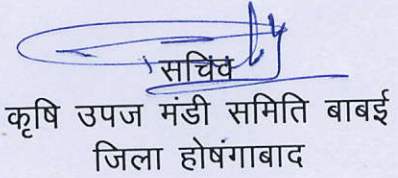 सचिव
कृषि उपज मंडी समिति बाबई
जिला होषंगाबाद